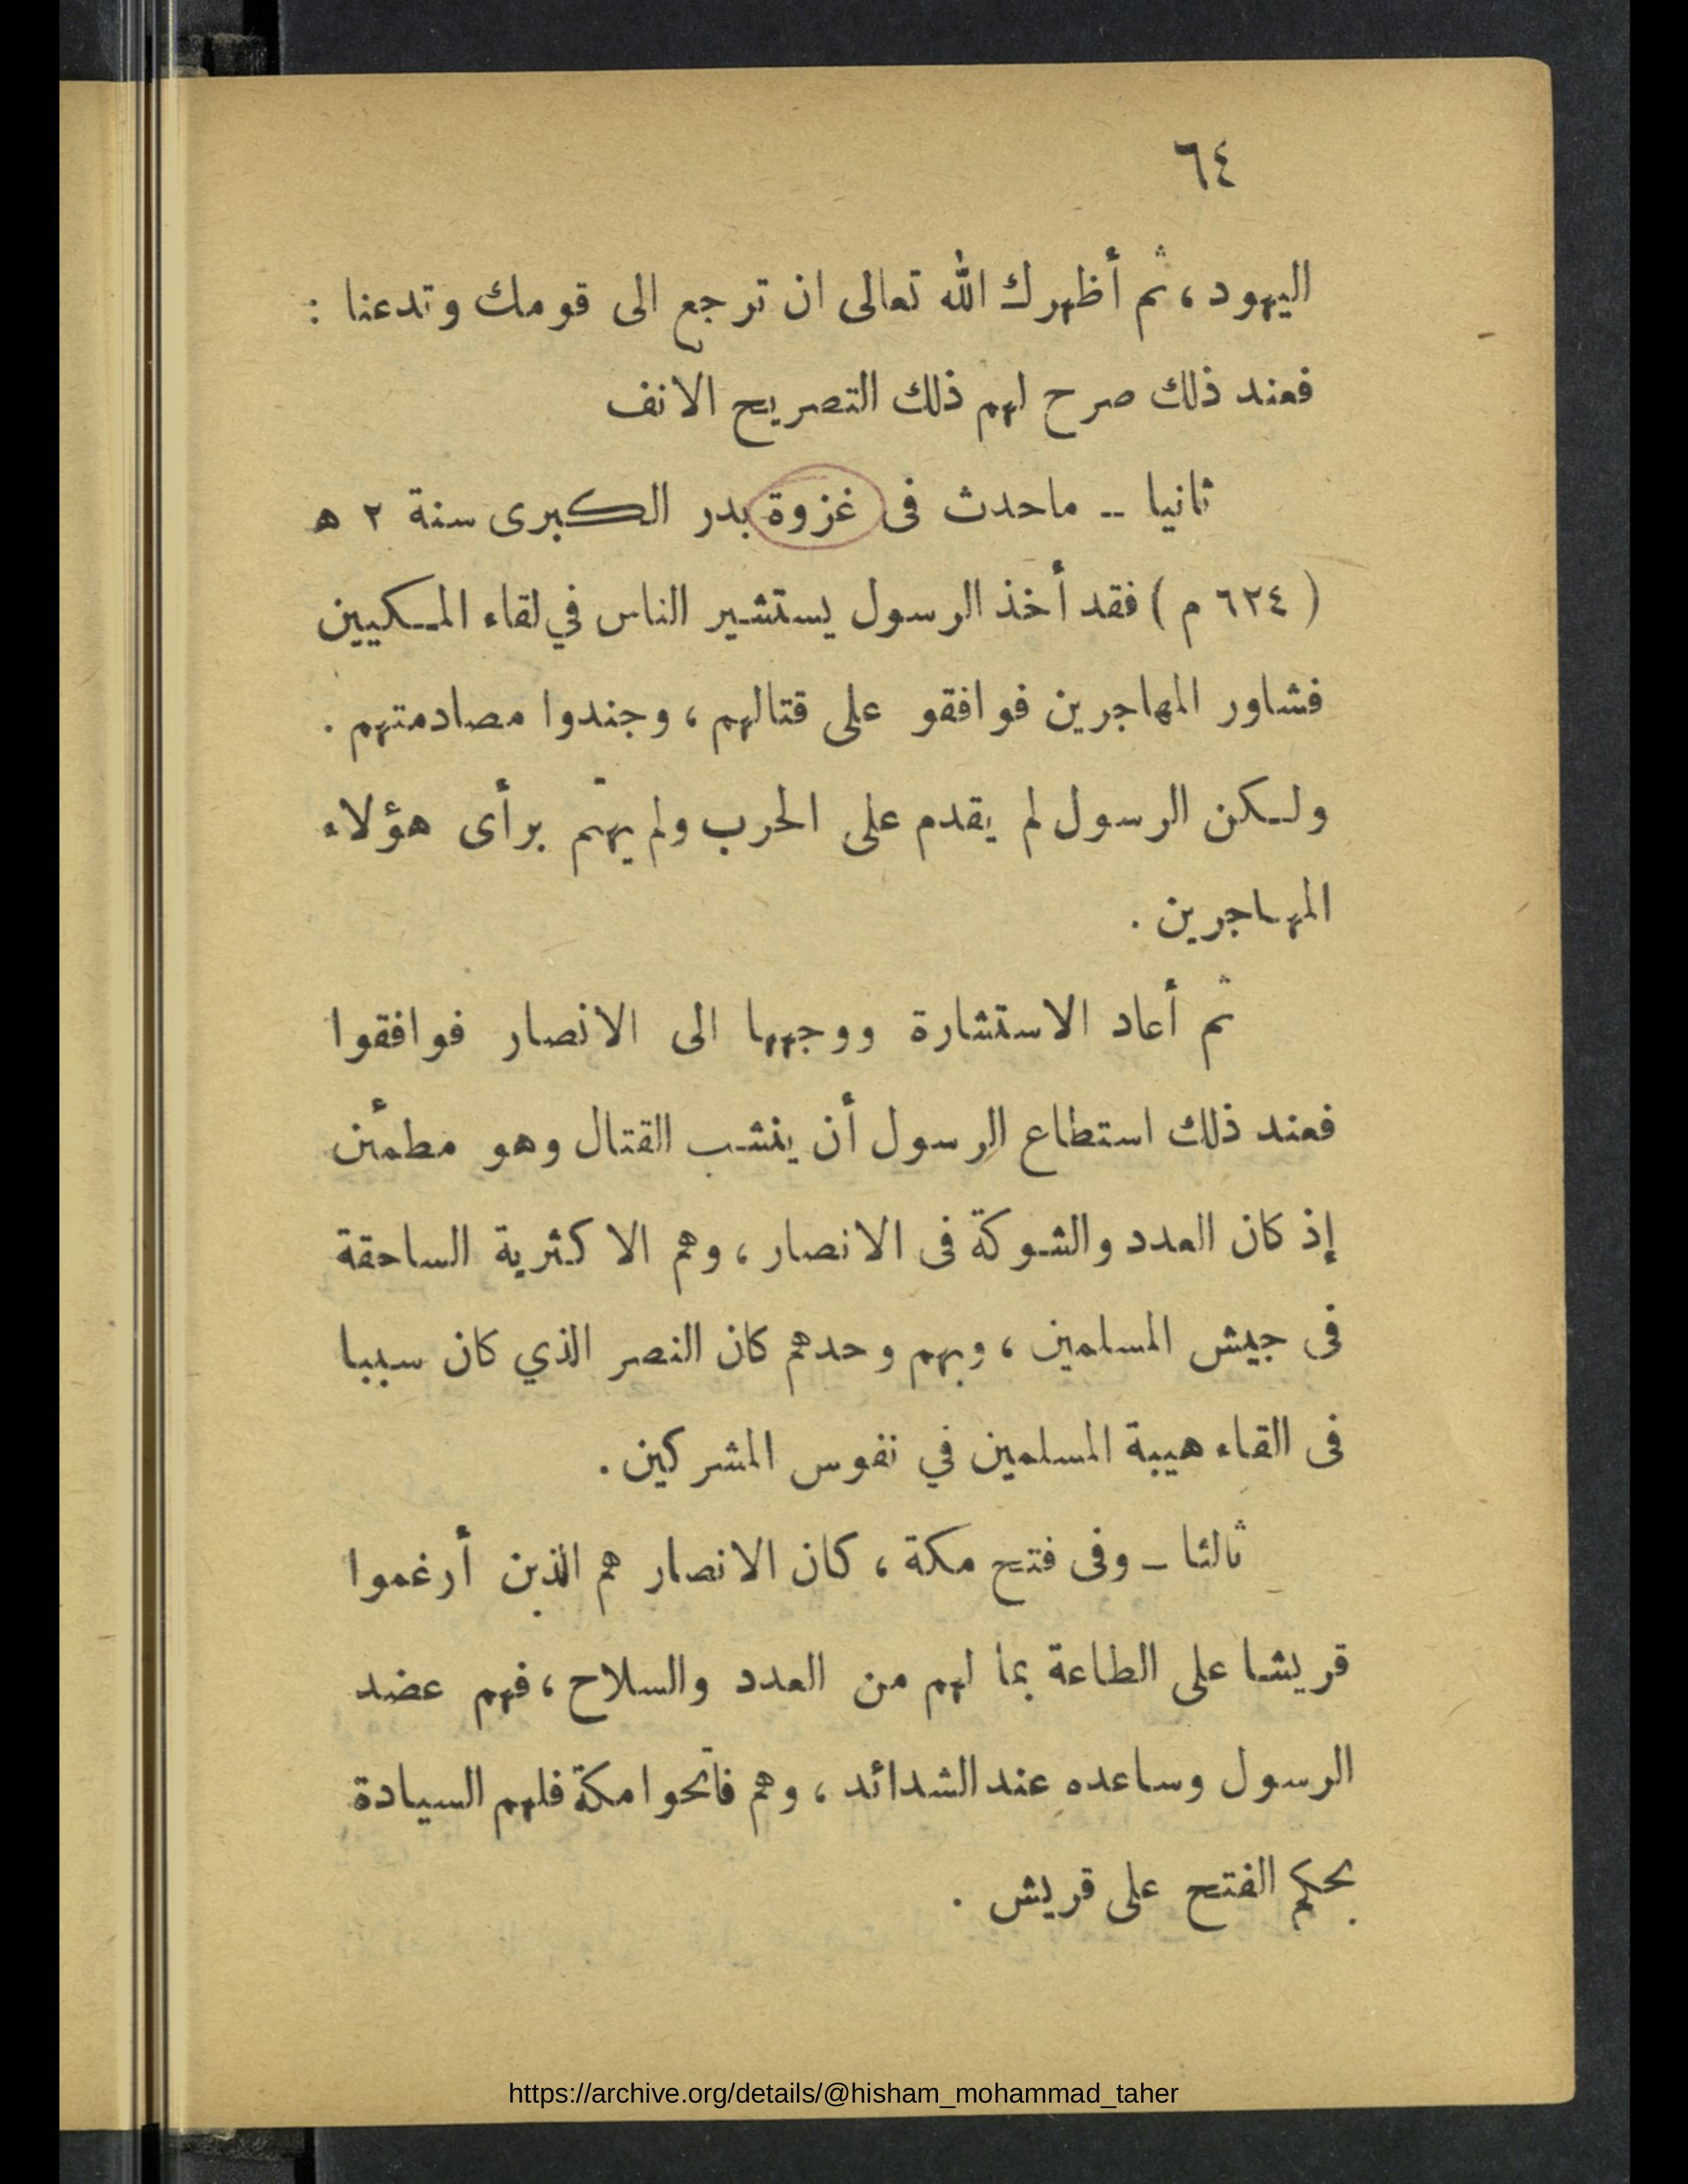 ٦٤
اليهود، ثم أظهرك الله تعالى ان ترجع الى قومك وتدعنا :
فعند ذلك صرح لهم ذلك التصريح الانف
ثانيا -- ماحدث فى غزوة بدر الكبرى سنة ٢ ه
( ٦٢٤ م ) فقد أخذ الرسول يستشير الناس في لقاء المكيين
فشاور المهاجرين فوافقو على قتالهم ، وجندوا مصادمتهم .
ولكن الرسول لم يقدم على الحرب ولم يهتم برأى هؤلاء
المهاجرين .
ثم أعاد الاستشارة ووجهها الى الانصار فوافقوا
فعند ذلك استطاع الرسول أن ينشب القتال وهو مطمئن
إذ كان العدد والشوكة فى الانصار ، وهم الاكثرية الساحقة
فى جيش المسلمين ، وبهم وحدهم كان النصر الذي كان سببا
فى القاء هيبة المسلمين في نفوس المشركين .
ثالثا - وفى فتح مكة ، كان الانصار هم الذين أرغموا
قريشا على الطاعة بما لهم من العدد والسلاح ، فهم عضد
الرسول وساعده عند الشدائد ، وهم فاتحوا مكة فلهم السيادة
بحكم الفتح على قريش .
https://archive.org/details/@hisham_mohammad_taher